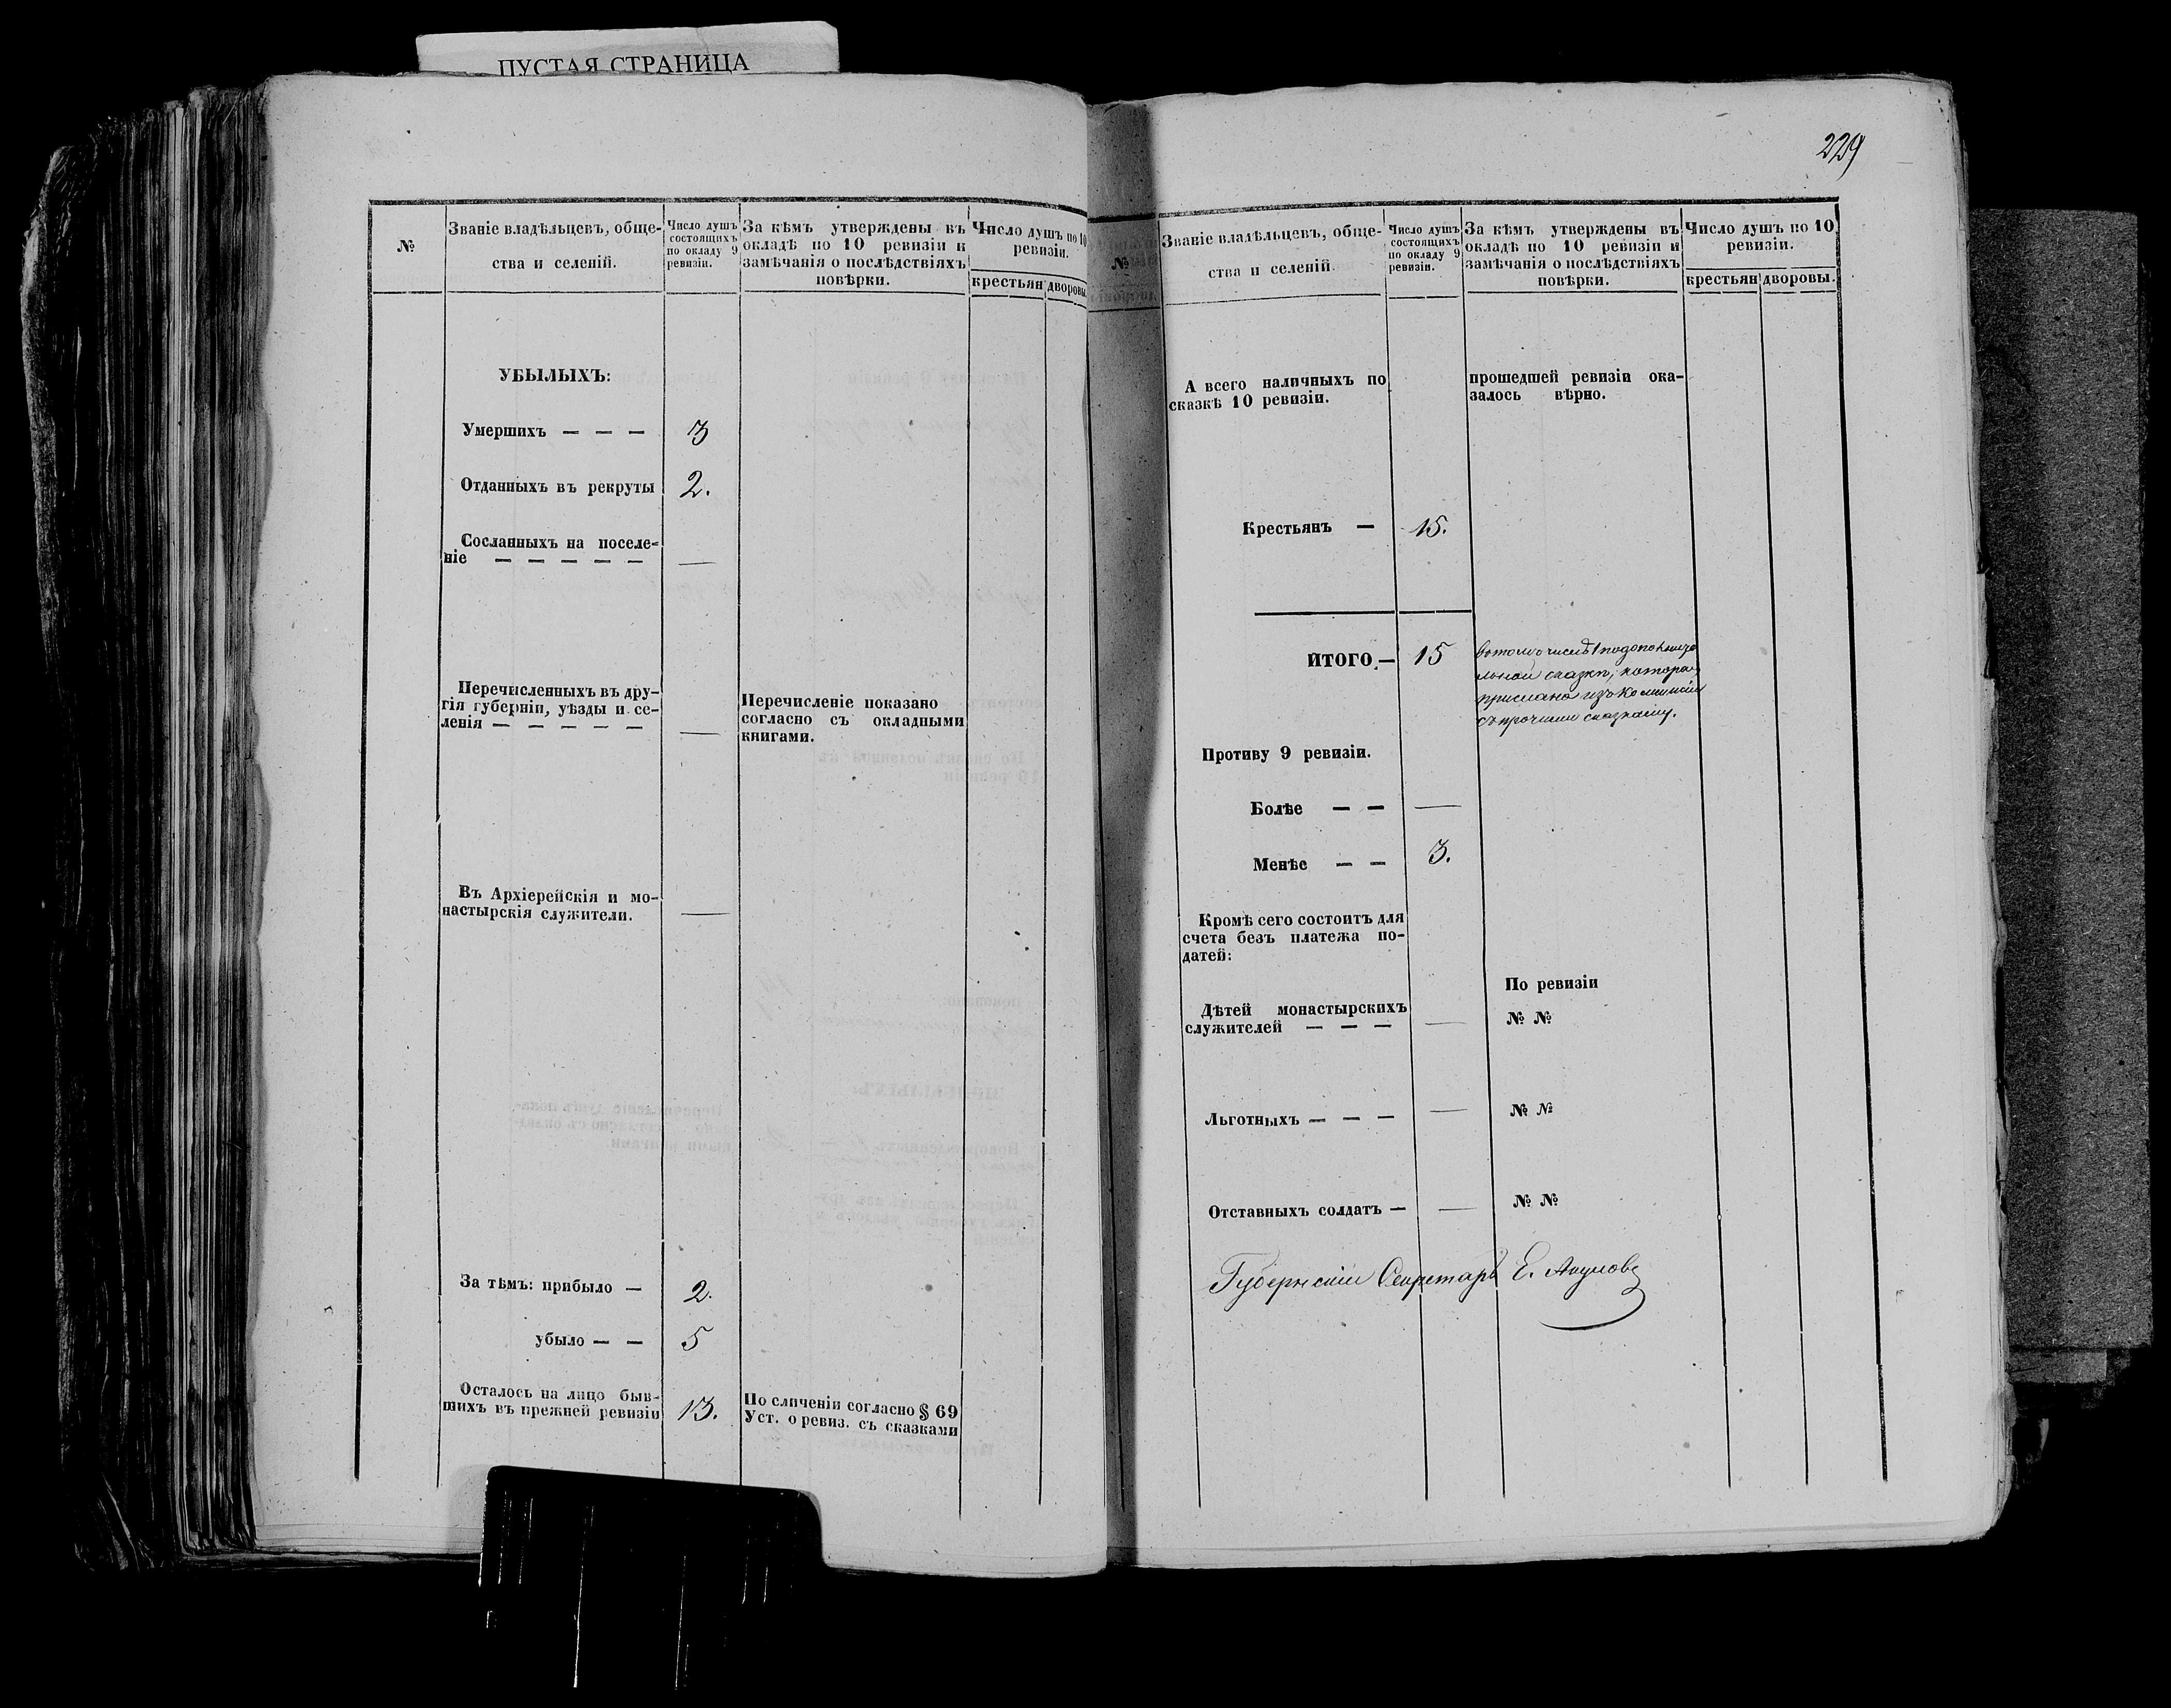 ПУСТАЯ СТРАНИЦА
№
Званіе владѣльцевъ, обще-
ства и селеній.
Число душъ
состоящихъ
по окладу 9
ревизіи.
За кѣмъ утверждены въ
окладѣ по 10 ревизіи и
замѣчанія о послѣдствіяхъ
повѣрки.
Число душъ по 10
ревизіи.
крестьян
дворовы.
УБЫЛЫХЪ:
Умершихъ — — — 3
Отданныхъ въ рекруты 2.
Сосланныхъ на поселе-
ніе — — — — — —
Перечисленныхъ въ дру-
гія губерніи, уѣзды и се-
ленія — — — — — —
Перечисленіе показано
согласно съ окладными
книгами.
Въ Архіерейскія и мо-
настырскія служители. —
За тѣмъ: прибыло — 2.
убыло — — 5
Осталось на лицо быв-
шихъ въ прежней ревизіи 13.
По сличеніи согласно § 69
Уст. о ревиз. съ сказками
229
№
Званіе владѣльцевъ, обще-
ства и селеній.
Число душъ
состоящихъ
по окладу 9
ревизіи.
За кѣмъ утверждены въ
окладѣ по 10 ревизіи и
замѣчанія о послѣдствіяхъ
повѣрки.
Число душъ по 10
ревизіи.
крестьян
дворовы.
А всего наличныхъ по
сказкѣ 10 ревизіи.
прошедшей ревизіи ока-
залось вѣрно.
Крестьянъ — 15.
ИТОГО.— 15
въ томъ числѣ 1 по дополнитe
льной сказкѣ, котора
прислана изъ Коммисіи
съ прочими сказками.
Противу 9 ревизіи.
Болѣе — — —
Менѣе — — 3.
Кромѣ сего состоитъ для
счета безъ платежа по-
датей:
По ревизіи
Дѣтей монастырскихъ
служителей — — — —
№ №
Льготныхъ — — — —
№ №
Отставныхъ солдатъ — —
№ №
Губернскій Секретарь Е.